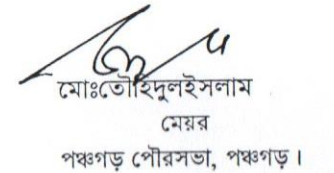 মোঃতৌহিদুলইসলাম
মেয়র
পঞ্চগড় পৌরসভা, পঞ্চগড়।